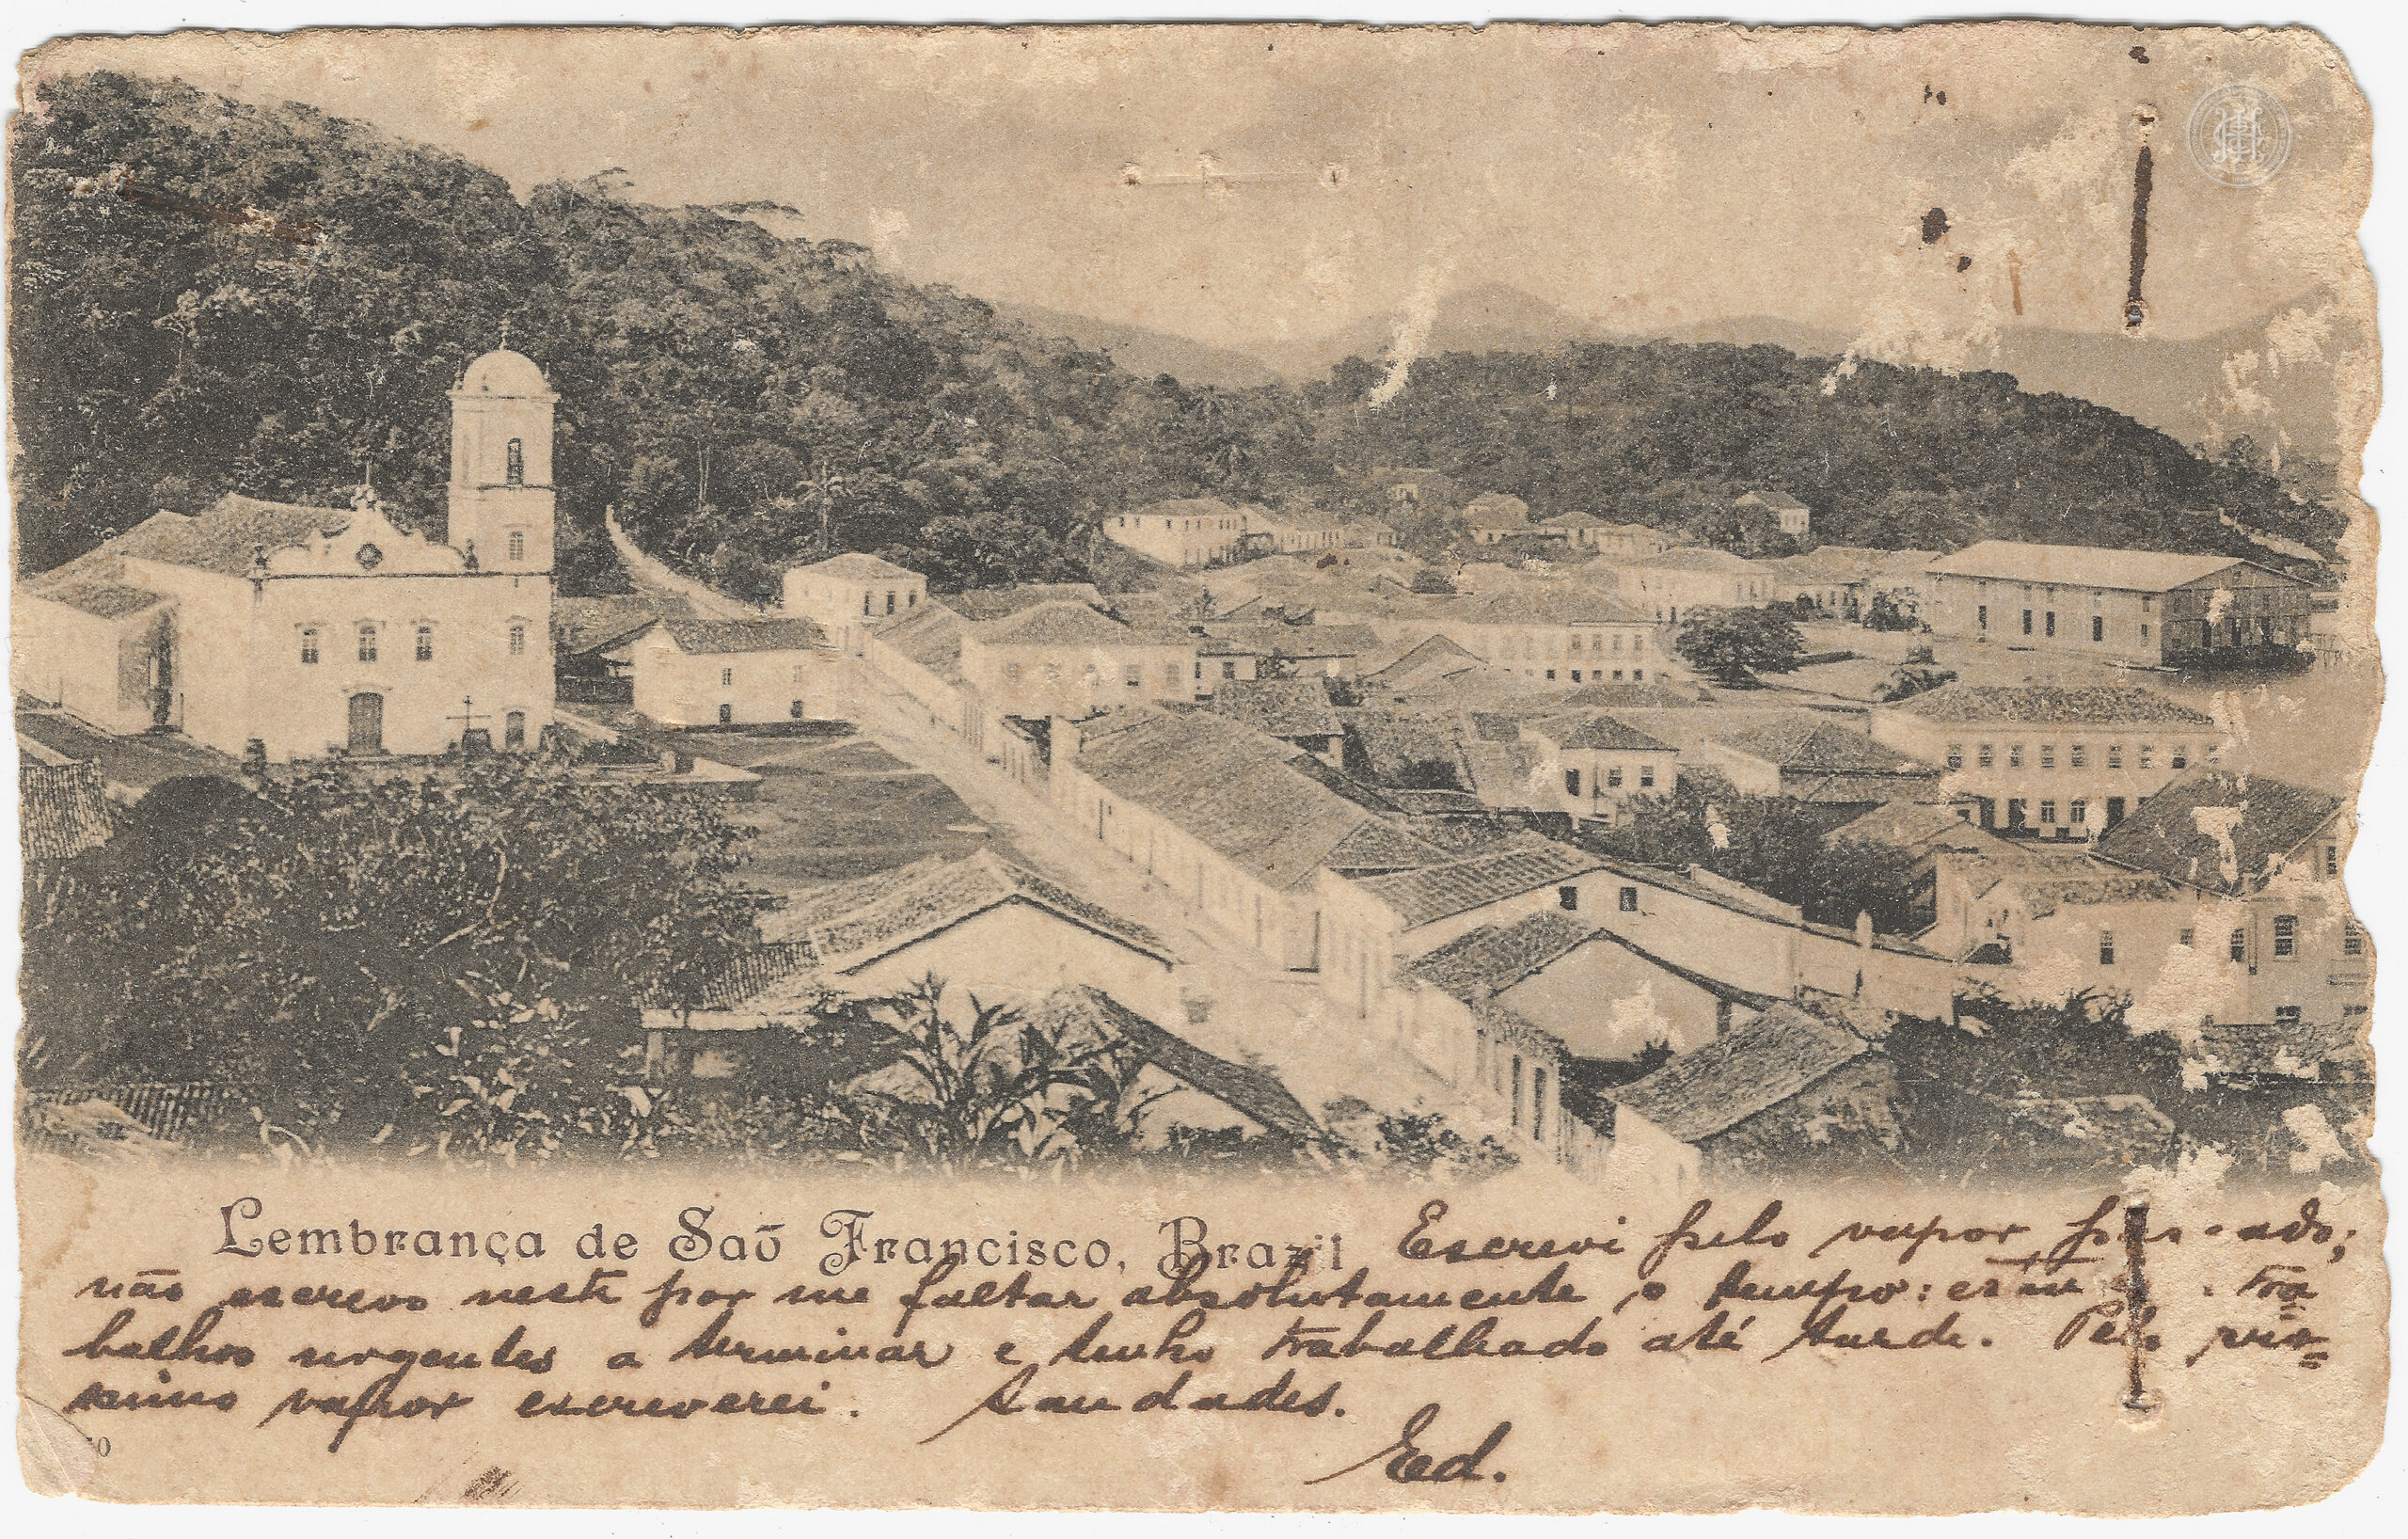 Lembrança de Saõ Francisco, Brazil
Escrevi pelo vapor passado;
não escrevo neste por me faltar absolutamente o tempo: tra
balhos urgentes a terminar e tenho trabalhado até tarde. Pelo pro=
ximo vapor escreverei. Saudades.
Ed.